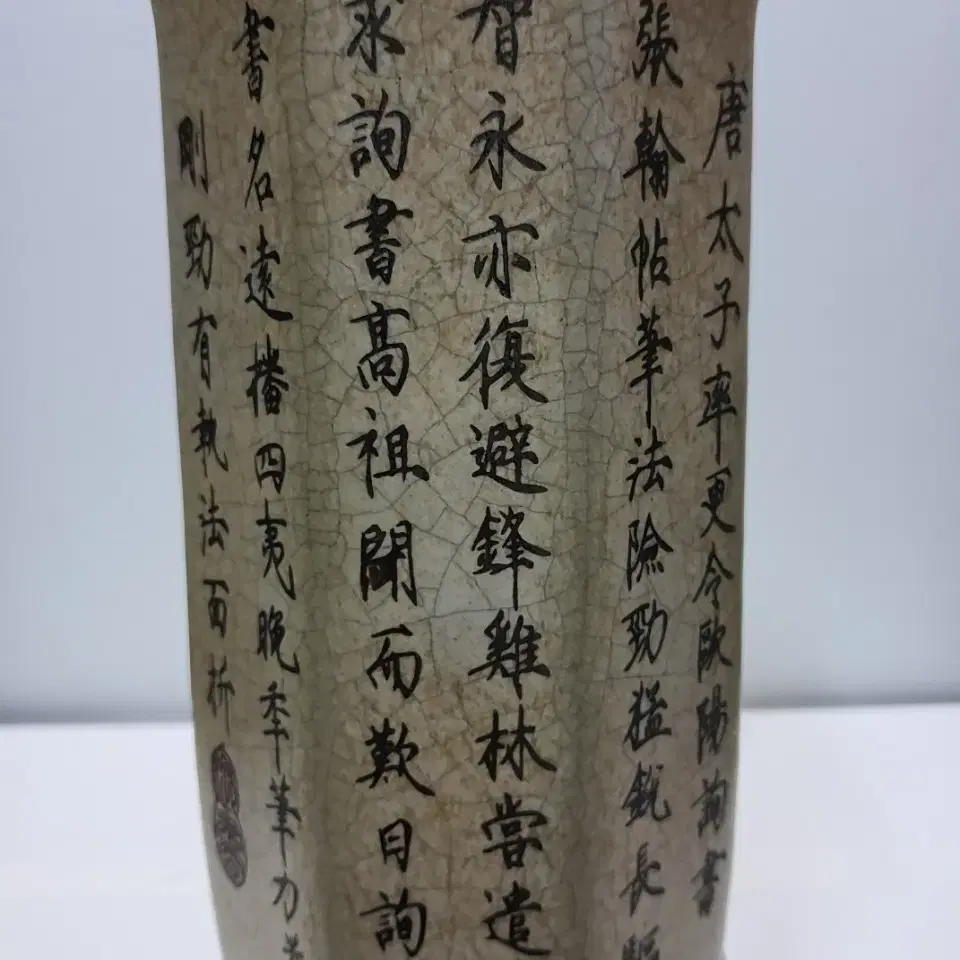 唐太子率更令歐陽詢書
張翰帖筆法險勁猛銳長驅
智永亦復避鋒雞林嘗遣
求詢書高祖聞而歎曰詢
書名遠播四夷晚年筆力
剛勁有執法面折